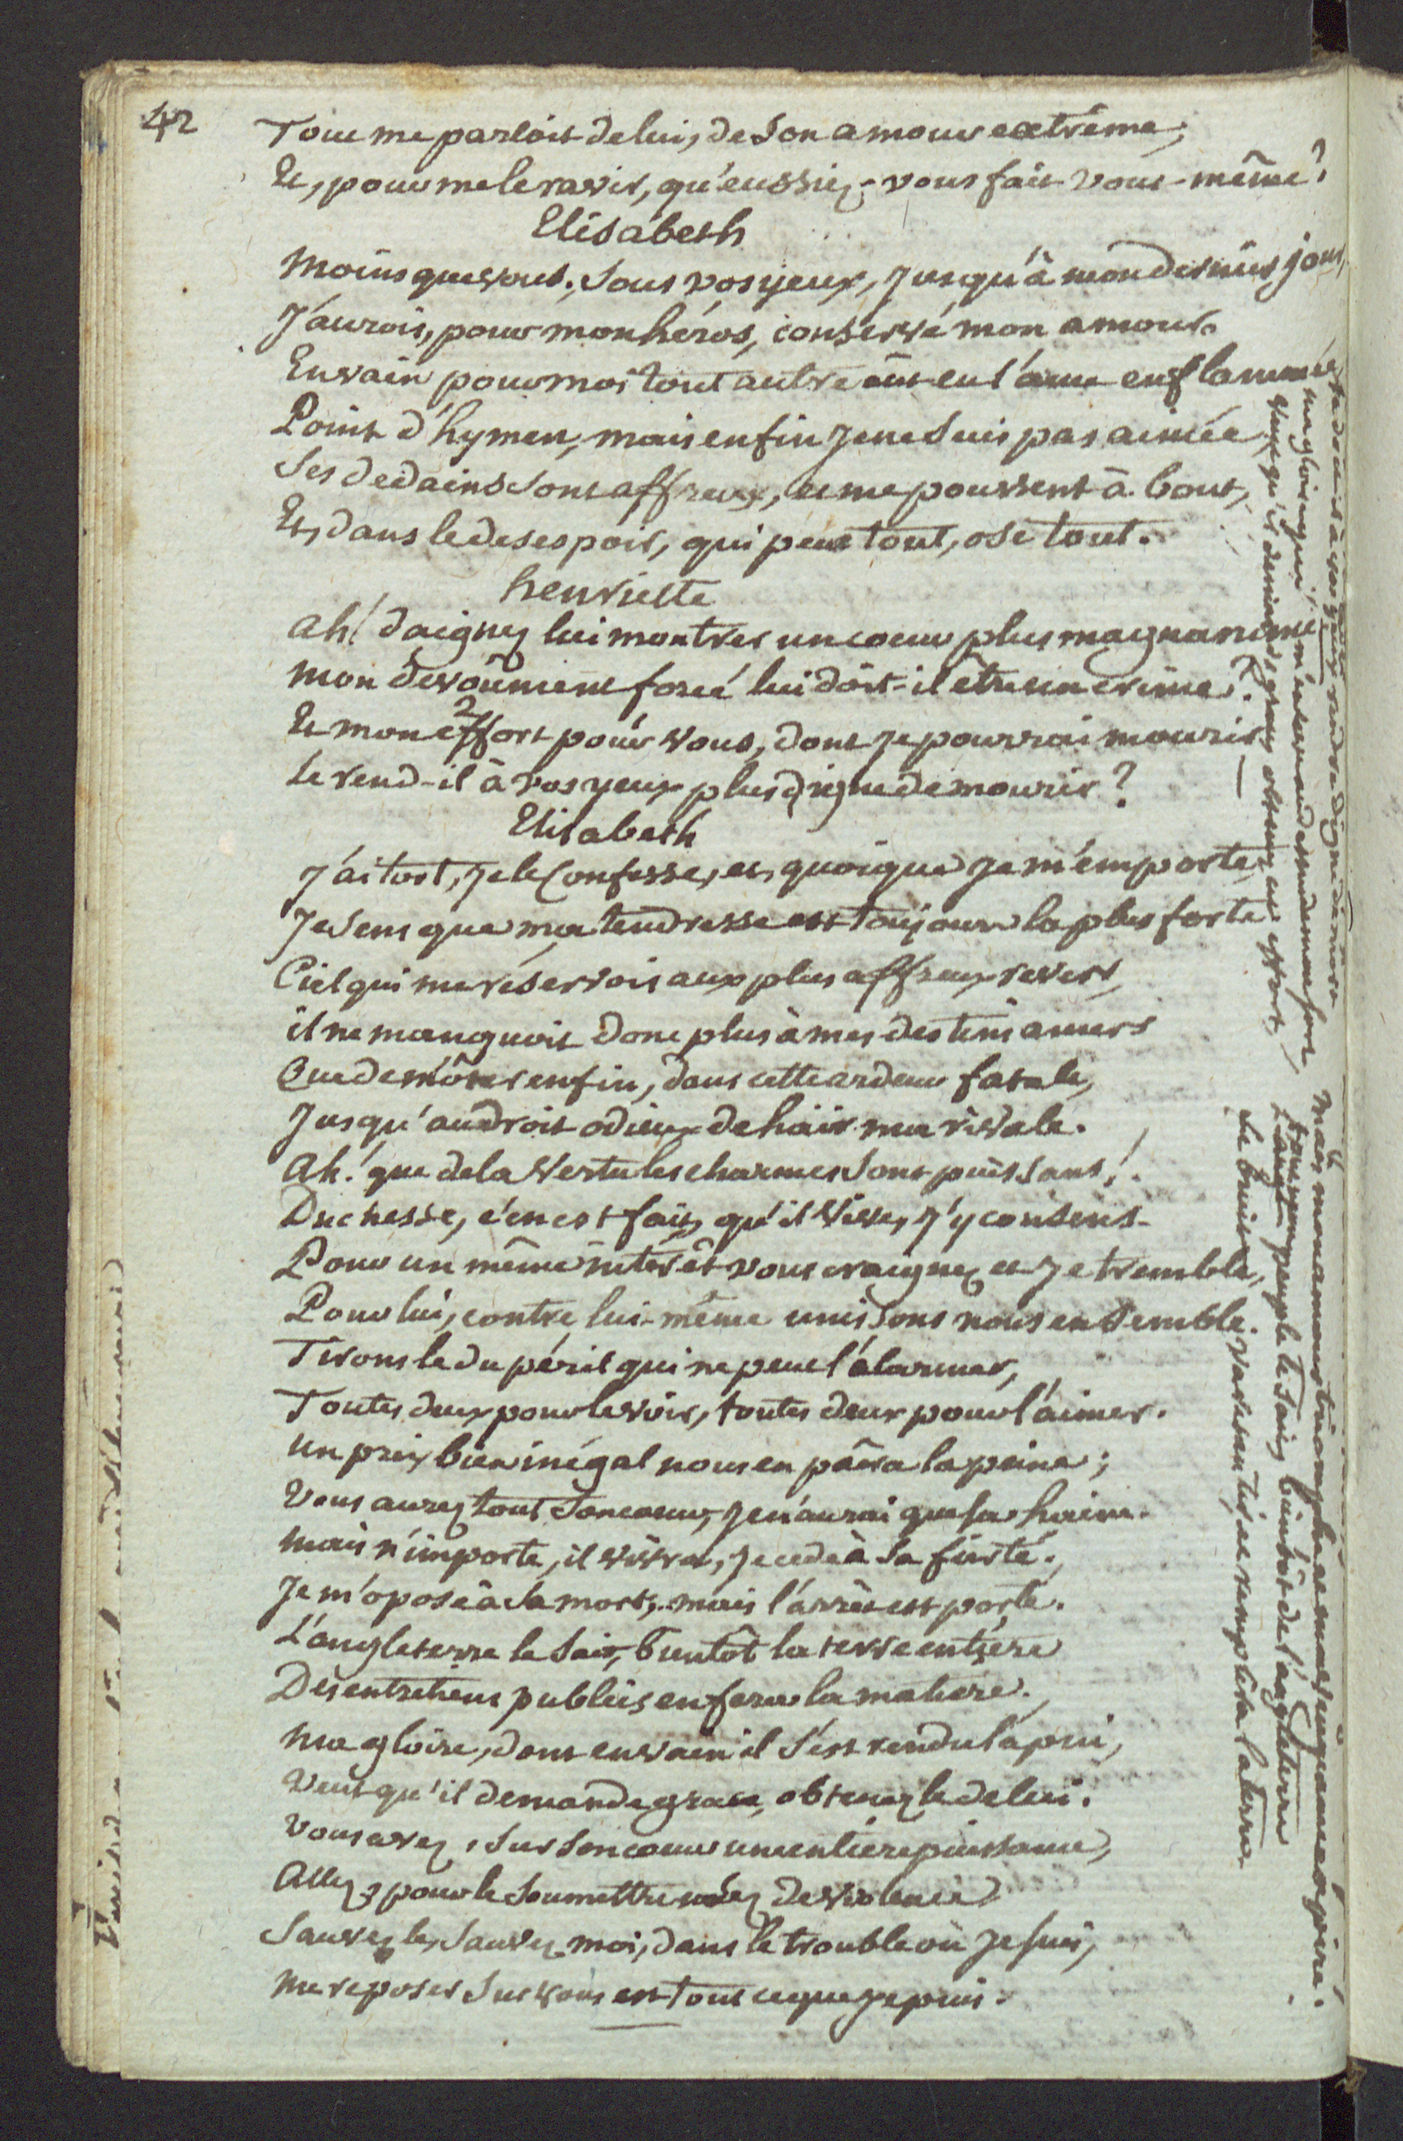 42
Tout me parloit de lui, de son amour extrême,
Et, pour me le ravir, qu'eussiez-vous fait vous-même?
Elisabeth
Moins que vous. Sous vos yeux, jusqu'à mon dernier jour,
J'aurois, pour mon héros, conservé mon amour.
En vain pour moi tout autre eût eu l'ame enflammée
Point d'hymen, mais enfin je ne suis pas aimée
Ses dedains sont affreux, et me poussent à bout,
Et, dans le desespoir, qui peut tout, ose tout.
henriette
ah! daignez lui montrer un coeur plus magnanime
mon dévoûment forcé lui doit-il être un crime?
Et mon effort pour vous, dont je pourrai mourir
Le rend-il à vos yeux plus digne de mourir?
Elisabeth
J'ai tort, je le confesse, et, quoique je m'emporte,
Je sens que ma tendresse est toujours la plus forte
Ciel qui me réservois aux plus affreux revers,
il ne manquoit donc plus à mes destins amers
Que de m'ôter enfin, dans cette ardeur fatale,
Jusqu'au droit odieux de haïr ma rivale.
Ah! que de la vertu les charmes sont puissans!
Duchesse, c'en est fait, qu'il vive, j'y consens.
Pour un même intérêt vous craignez et je tremble,
Pour lui, contre lui-même unissons nous ensemble.
Tirons le du péril qui ne peut l'alarmer,
Toutes deux pour le voir, toutes deux pour l'aimer.
un prix bien inégal nous en païra la peine;
Vous aurez tout son coeur, je n'aurai que sa haine.
mais n'importe, il vivra, je cede à sa fierté.
Je m'opose à sa mort, mais l'arrêt est porté.
L'angleterre le sait, bientôt la terre entière
Des entretiens publics en fera la matiere.
ma gloire, dont en vain il s'est rendu l'apui,
Veut qu'il demande grace, obtenez le de lui.
Vous avez, sur son coeur une entiere puissance,
Allez, pour le soumettre usez de violence
Sauvez le, sauvez moi, dans le trouble où je suis,
me reposer sur vous est tout ce que je puis.
à vos yeux rendre digne de mort
ma gloire
Veut qu'il demande grace, obtenez cet effort,
mais mon amour triomphe et ma vengeance expire.
peuple le sait, bientôt de l'angleterre
Le bruit va retentir et remplira la terre